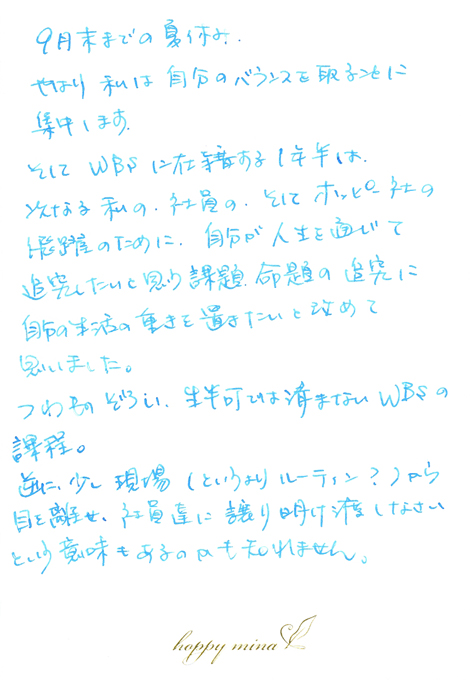 9月末までの夏休み.
やはり 私は 自分のバランスを取ることに
集中します.
そして WBSに在籍する1年半は、
次なる 私の、社員の、そして ホッピー社の
飛躍のために、自分が 人生を通じて
追究したいと思う課題、命題の 追究に
自分の生活の重きを置きたいと改めて
思いました。
つわものぞろい、生半可では済まない WBSの
課程。
逆に、少し 現場(というよりルーティン?)から
目を離せ、社員達に 譲り明け渡しなさい
という意味もあるのかも知れません。
hoppy mina